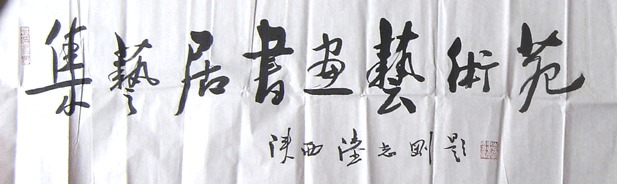 集藝居書画藝術苑
陕西潼志刚题